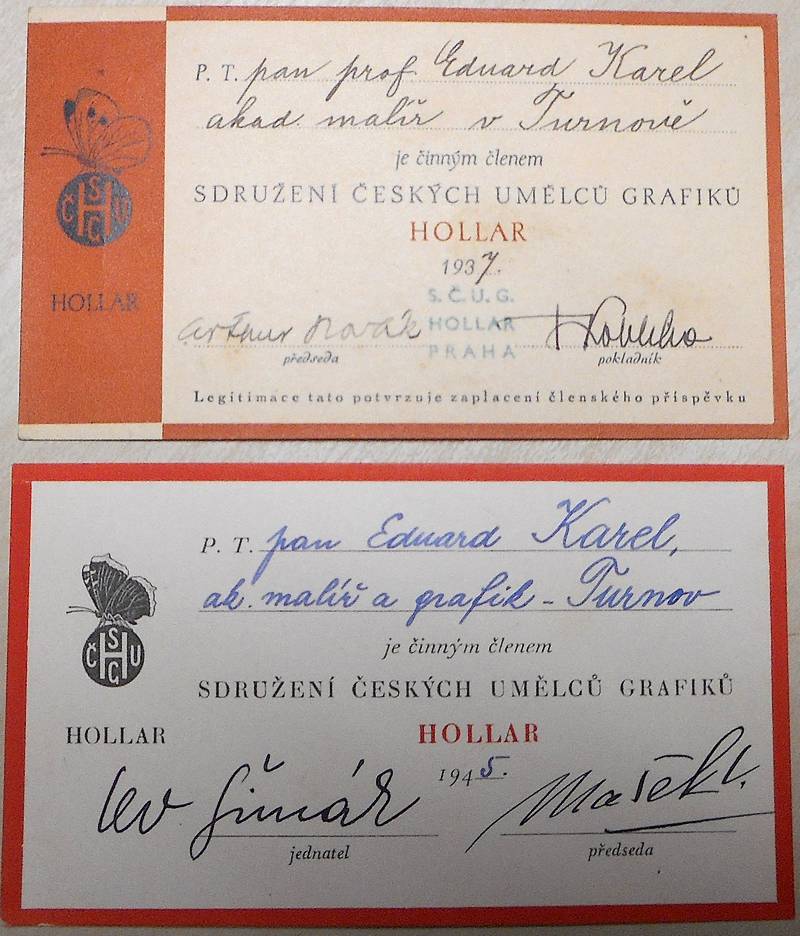 P. T. pan prof. Eduard Karel
akad. malíř v Turnově
je činným členem
SDRUŽENÍ ČESKÝCH UMĚLCŮ GRAFIKŮ
HOLLAR
1937.
S. Č. U. G.
HOLLAR
PRAHA
Arthur Novák
předseda
pokladník
Legitimace tato potvrzuje zaplacení členského příspěvku
SČUG
HOLLAR
P. T. pan Eduard Karel,
ak. malíř a grafik - Turnov
je činným členem
SDRUŽENÍ ČESKÝCH UMĚLCŮ GRAFIKŮ
HOLLAR
1945.
Lev Šimák
jednatel
předseda
SČUG
HOLLAR